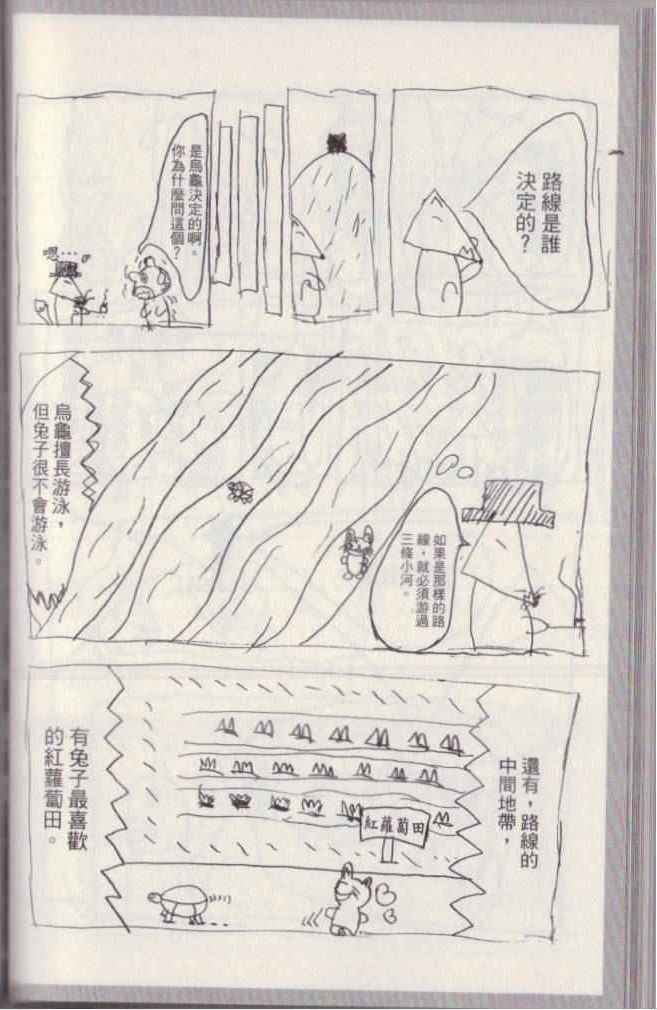 路線是誰
決定的?
是烏龜決定的啊。
你為什麼問這個?
嗯……。
如果是那樣的路
線,就必須游過
三條小河。
烏龜擅長游泳,
但兔子很不會游泳。
還有,路線的
中間地帶,
紅蘿蔔田
有兔子最喜歡
的紅蘿蔔田。